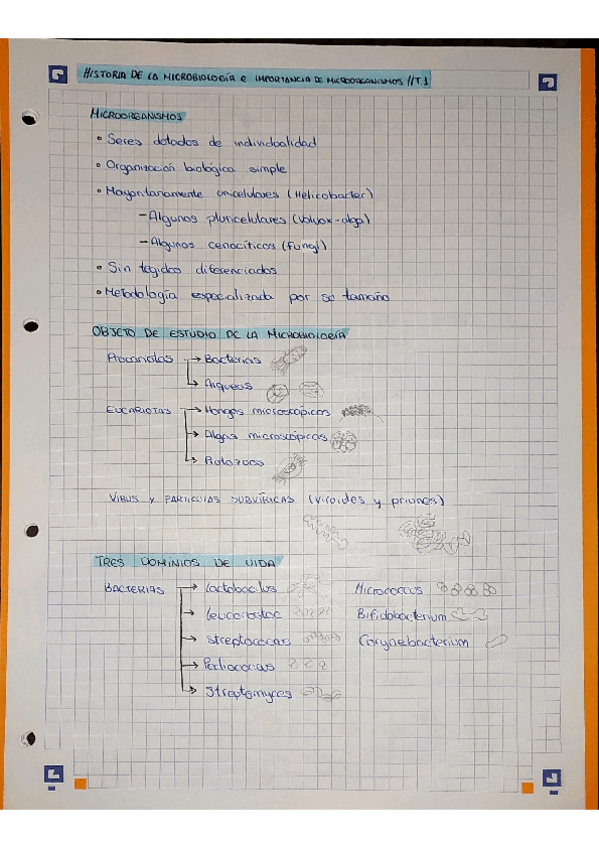 HISTORIA DE LA MICROBIOLOGÍA e IMPORTANCIA DE MICROORGANISMOS // T.1
MICROORGANISMOS
• Seres dotados de individualidad
• Organización biológica simple
• Mayoritariamente unicelulares (Helicobacter)
- Algunos pluricelulares (Volvox-alga)
- Algunos cenocíticos (Fungi)
• Sin tegidos diferenciados
• Metodología especializada por su tamaño
OBJETO DE ESTUDIO DE LA MICROBIOLOGÍA
Procariotas → Bacterias
→ Arqueas
EUCARIOTAS → Hongos microscópicos
→ Algas microscópicas
→ Protozoos
VIRUS Y PARTÍCULAS SUBVÍRICAS (Viroides y priones)
TRES DOMINIOS DE VIDA
BACTERIAS → Lactobacillus Micrococcus
→ Leuconostoc Bifidobacterium
→ Streptococcus Corynebacterium
→ Pediococcus
→ Streptomyces